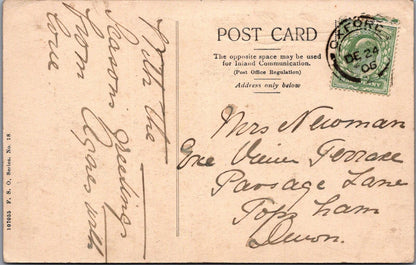 POST CARD
The opposite space may be used
for Inland Communication.
(Post Office Regulation)
Address only below
OXFORD
DE 24
06
With the
Seasons greetings
from Agnes with
love
Mrs Newman
Exe View Terrace
Passage Lane
Topsham
Devon.
107055 F. S. O. Series. No. 18